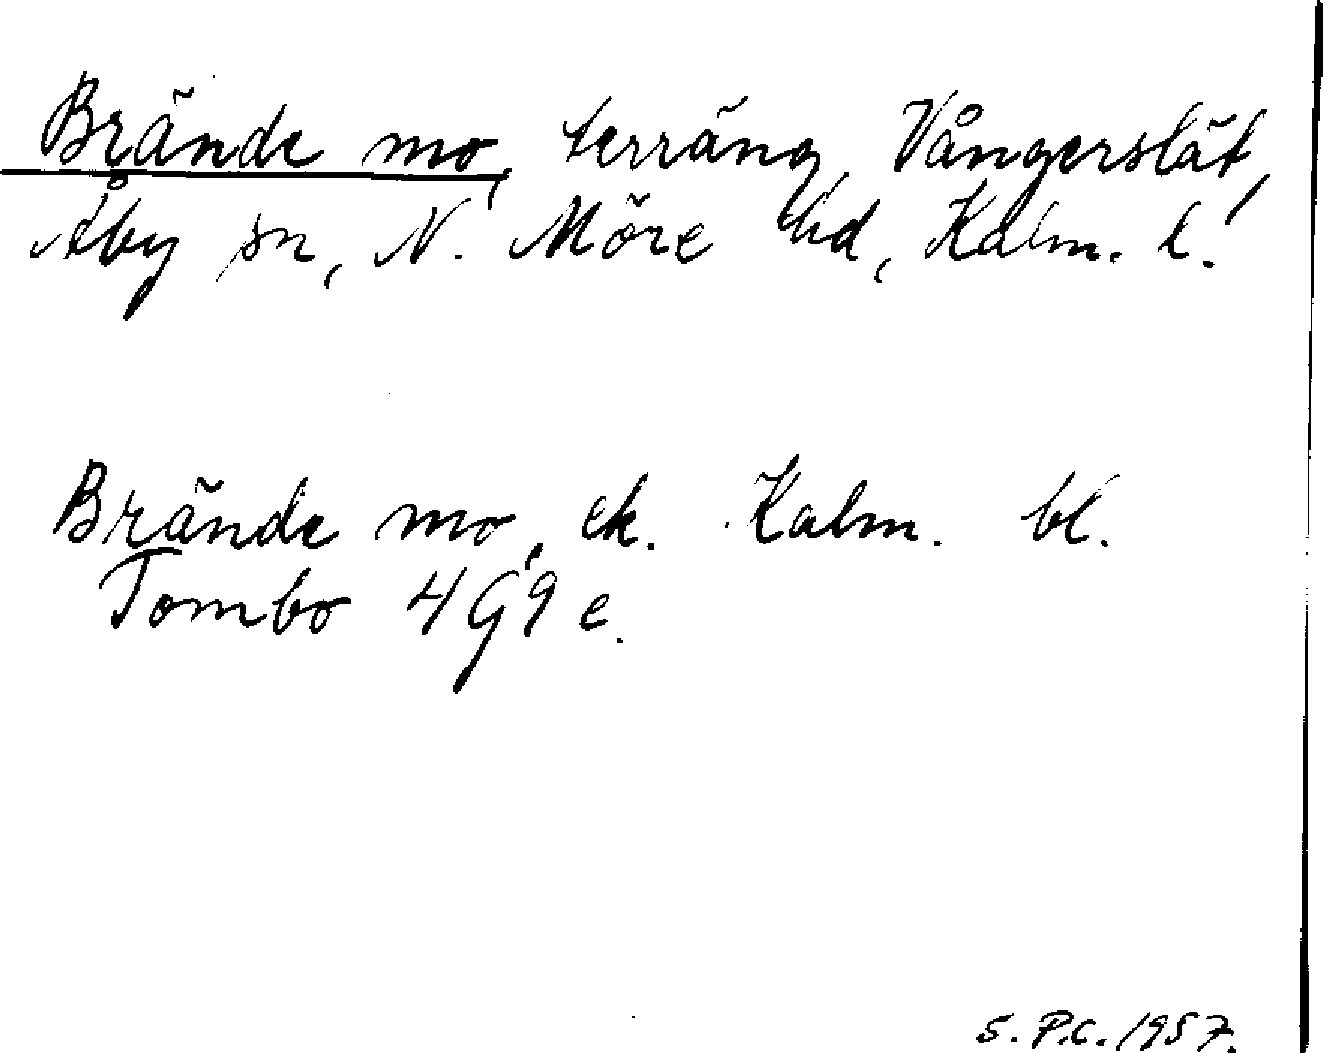 Brände mo, terräng, Vångerslät,
Åby sn, N. Möre hd, Kalm. l.
Brände mo, ek. Kalm. bl.
Tombo 4G9e.
S.P.C. 1957.